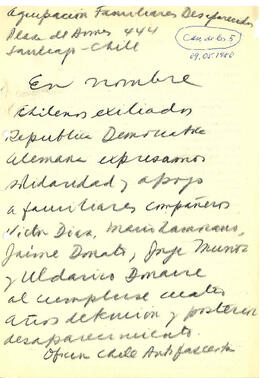 Agrupación Familiares Desaparecidos
Plaza de Armas 444
Santiago - Chile
09.05.1980
En nombre
chilenos exiliados
Republica Democratica
Alemana expresamos
solidaridad y apoyo
a familiares compañeros
Victor Diaz, Mario Zamorano,
Jaime Donato, Jorge Muñoz
y Uldarico Donaire
al cumplirse cuatro
años detencion y posterior
desaparecimiento.
Oficina Chile Antifascista